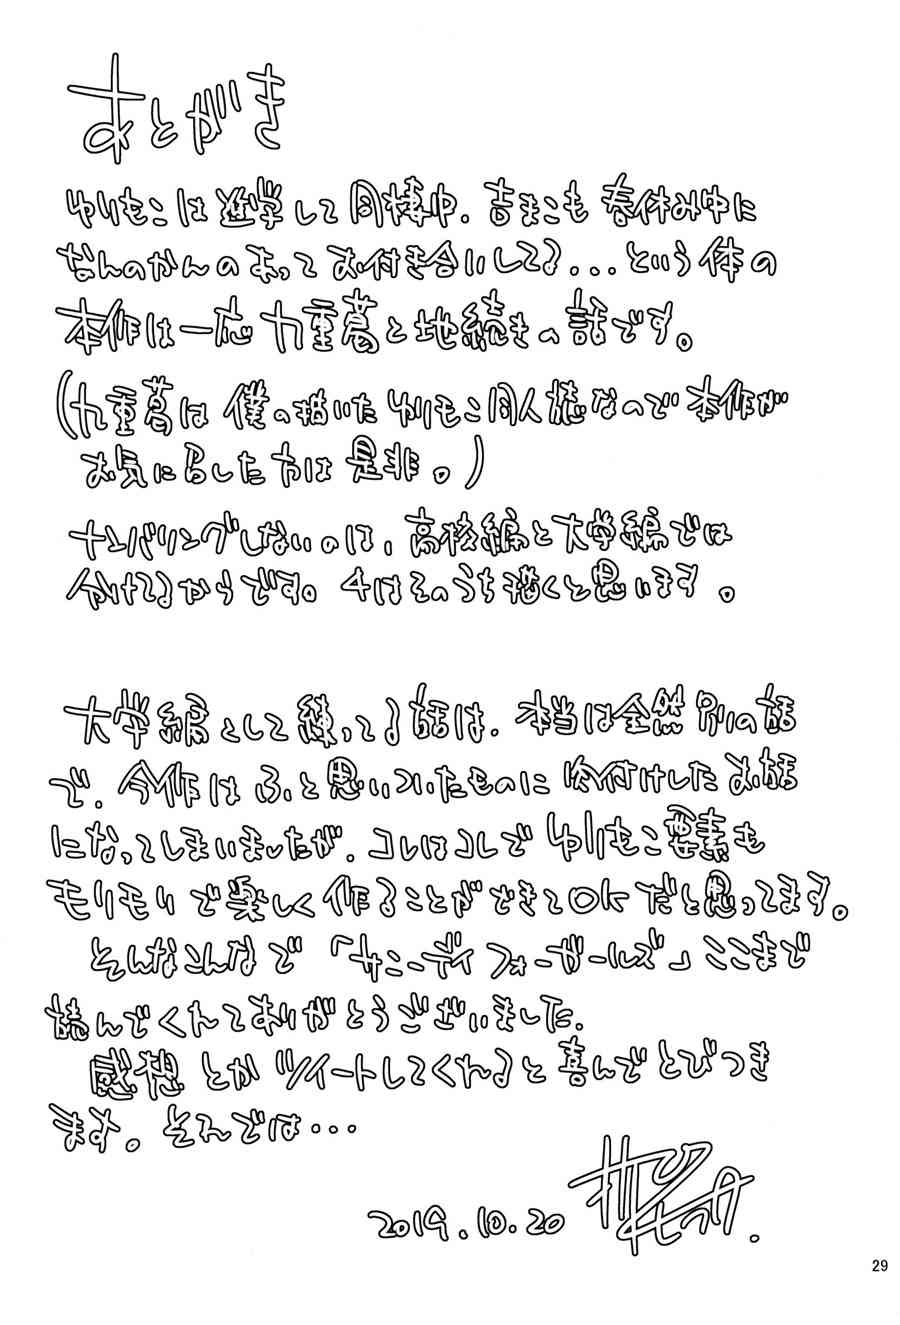 あとがき
ゆりもこは進学して同棲中、吉まこも春休み中に
なんのかんのあってお付き合いしてる...という体の
本作は一応九重葛と地続きの話です。
(九重葛は僕の描いたゆりもこ同人誌なので本作が
お気に召した方は是非。)
ナンバリングしないのは、高校編と大学編では
分けてるからです。4はそのうち描くと思います。
大学編として練ってる話は、本当は全然別の話
で、今作はふと思いついたものに肉付けしたお話
になってしまいましたが、コレはコレでゆりもこ要素も
モリモリで楽しく作ることができてOKだと思ってます。
そんなこんなで「サニーディフォーガールズ」ここまで
読んでくれてありがとうございました。
感想とかツイートしてくれると喜んでとびつき
ます。それでは...
2019.10.20
29